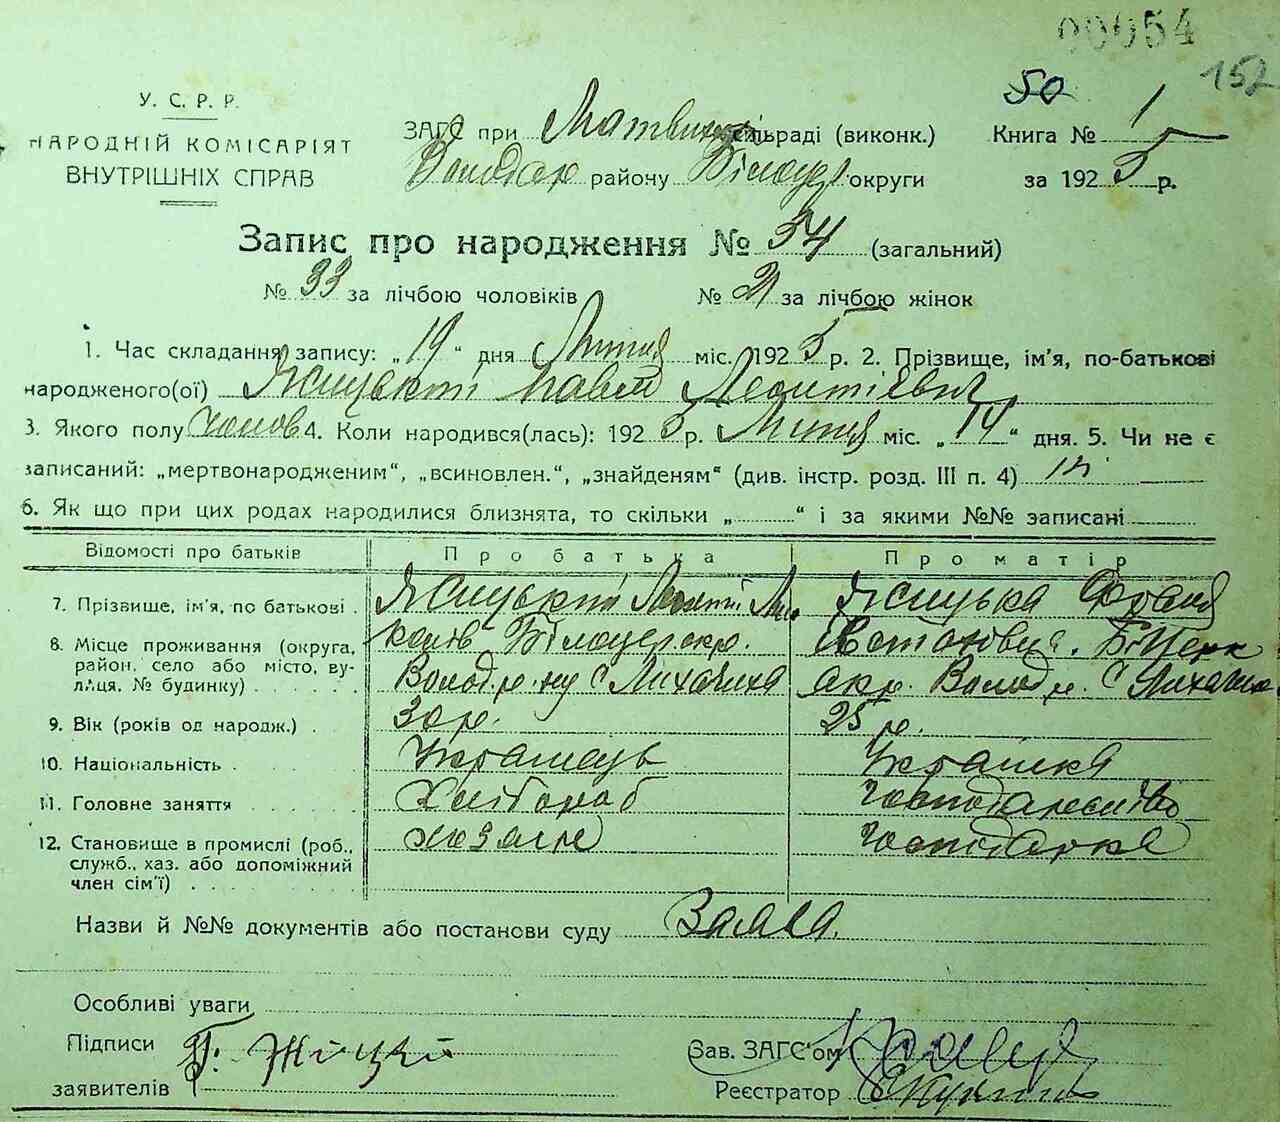 00054
50 152
У. С. Р. Р.
НАРОДНІЙ КОМІСАРІЯТ
ВНУТРІШНІХ СПРАВ
ЗАГС при сільраді (виконк.) Книга № 1
Володар району Білоцер округи за 1925 р.
Запис про народження № 54 (загальний)
№ 33 за лічбою чоловіків № 21 за лічбою жінок
1. Час складання запису: „19“ дня Липня міс. 1925 р. 2. Прізвище, ім'я, по-батькові
народженого(ої) Ясіцький Павло Леонтієвич
3. Якого полу чолов 4. Коли народився(лась): 1925 р. Липня міс. „14“ дня. 5. Чи не є
записаний: „мертвонародженим“, „всиновлен.“, „знайденям“ (див. інстр. розд. III п. 4) ні
6. Як що при цих родах народилися близнята, то скільки „ “ і за якими №№ записані
Відомості про батьків Про батька Про матір
7. Прізвище, ім'я, по батькові Леонтій Ми Ясіцька
8. Місце проживання (округа, район, село або місто, вулиця, № будинку) колів Білоцер окр. Б Церк
Волод р-ну с Лихачиха окр. Волод р. с Лихачиха
9. Вік (років од народж.) 30 р. 25 р.
10. Національність Українець Українка
11. Головне заняття Хлібороб господарство
12. Становище в промислі (роб., служб., хаз. або допоміжний член сім'ї) хозаїн господарка
Назви й №№ документів або постанови суду Заява.
Особливі уваги
Підписи
заявителів
Зав. ЗАГС'ом
Реєстратор